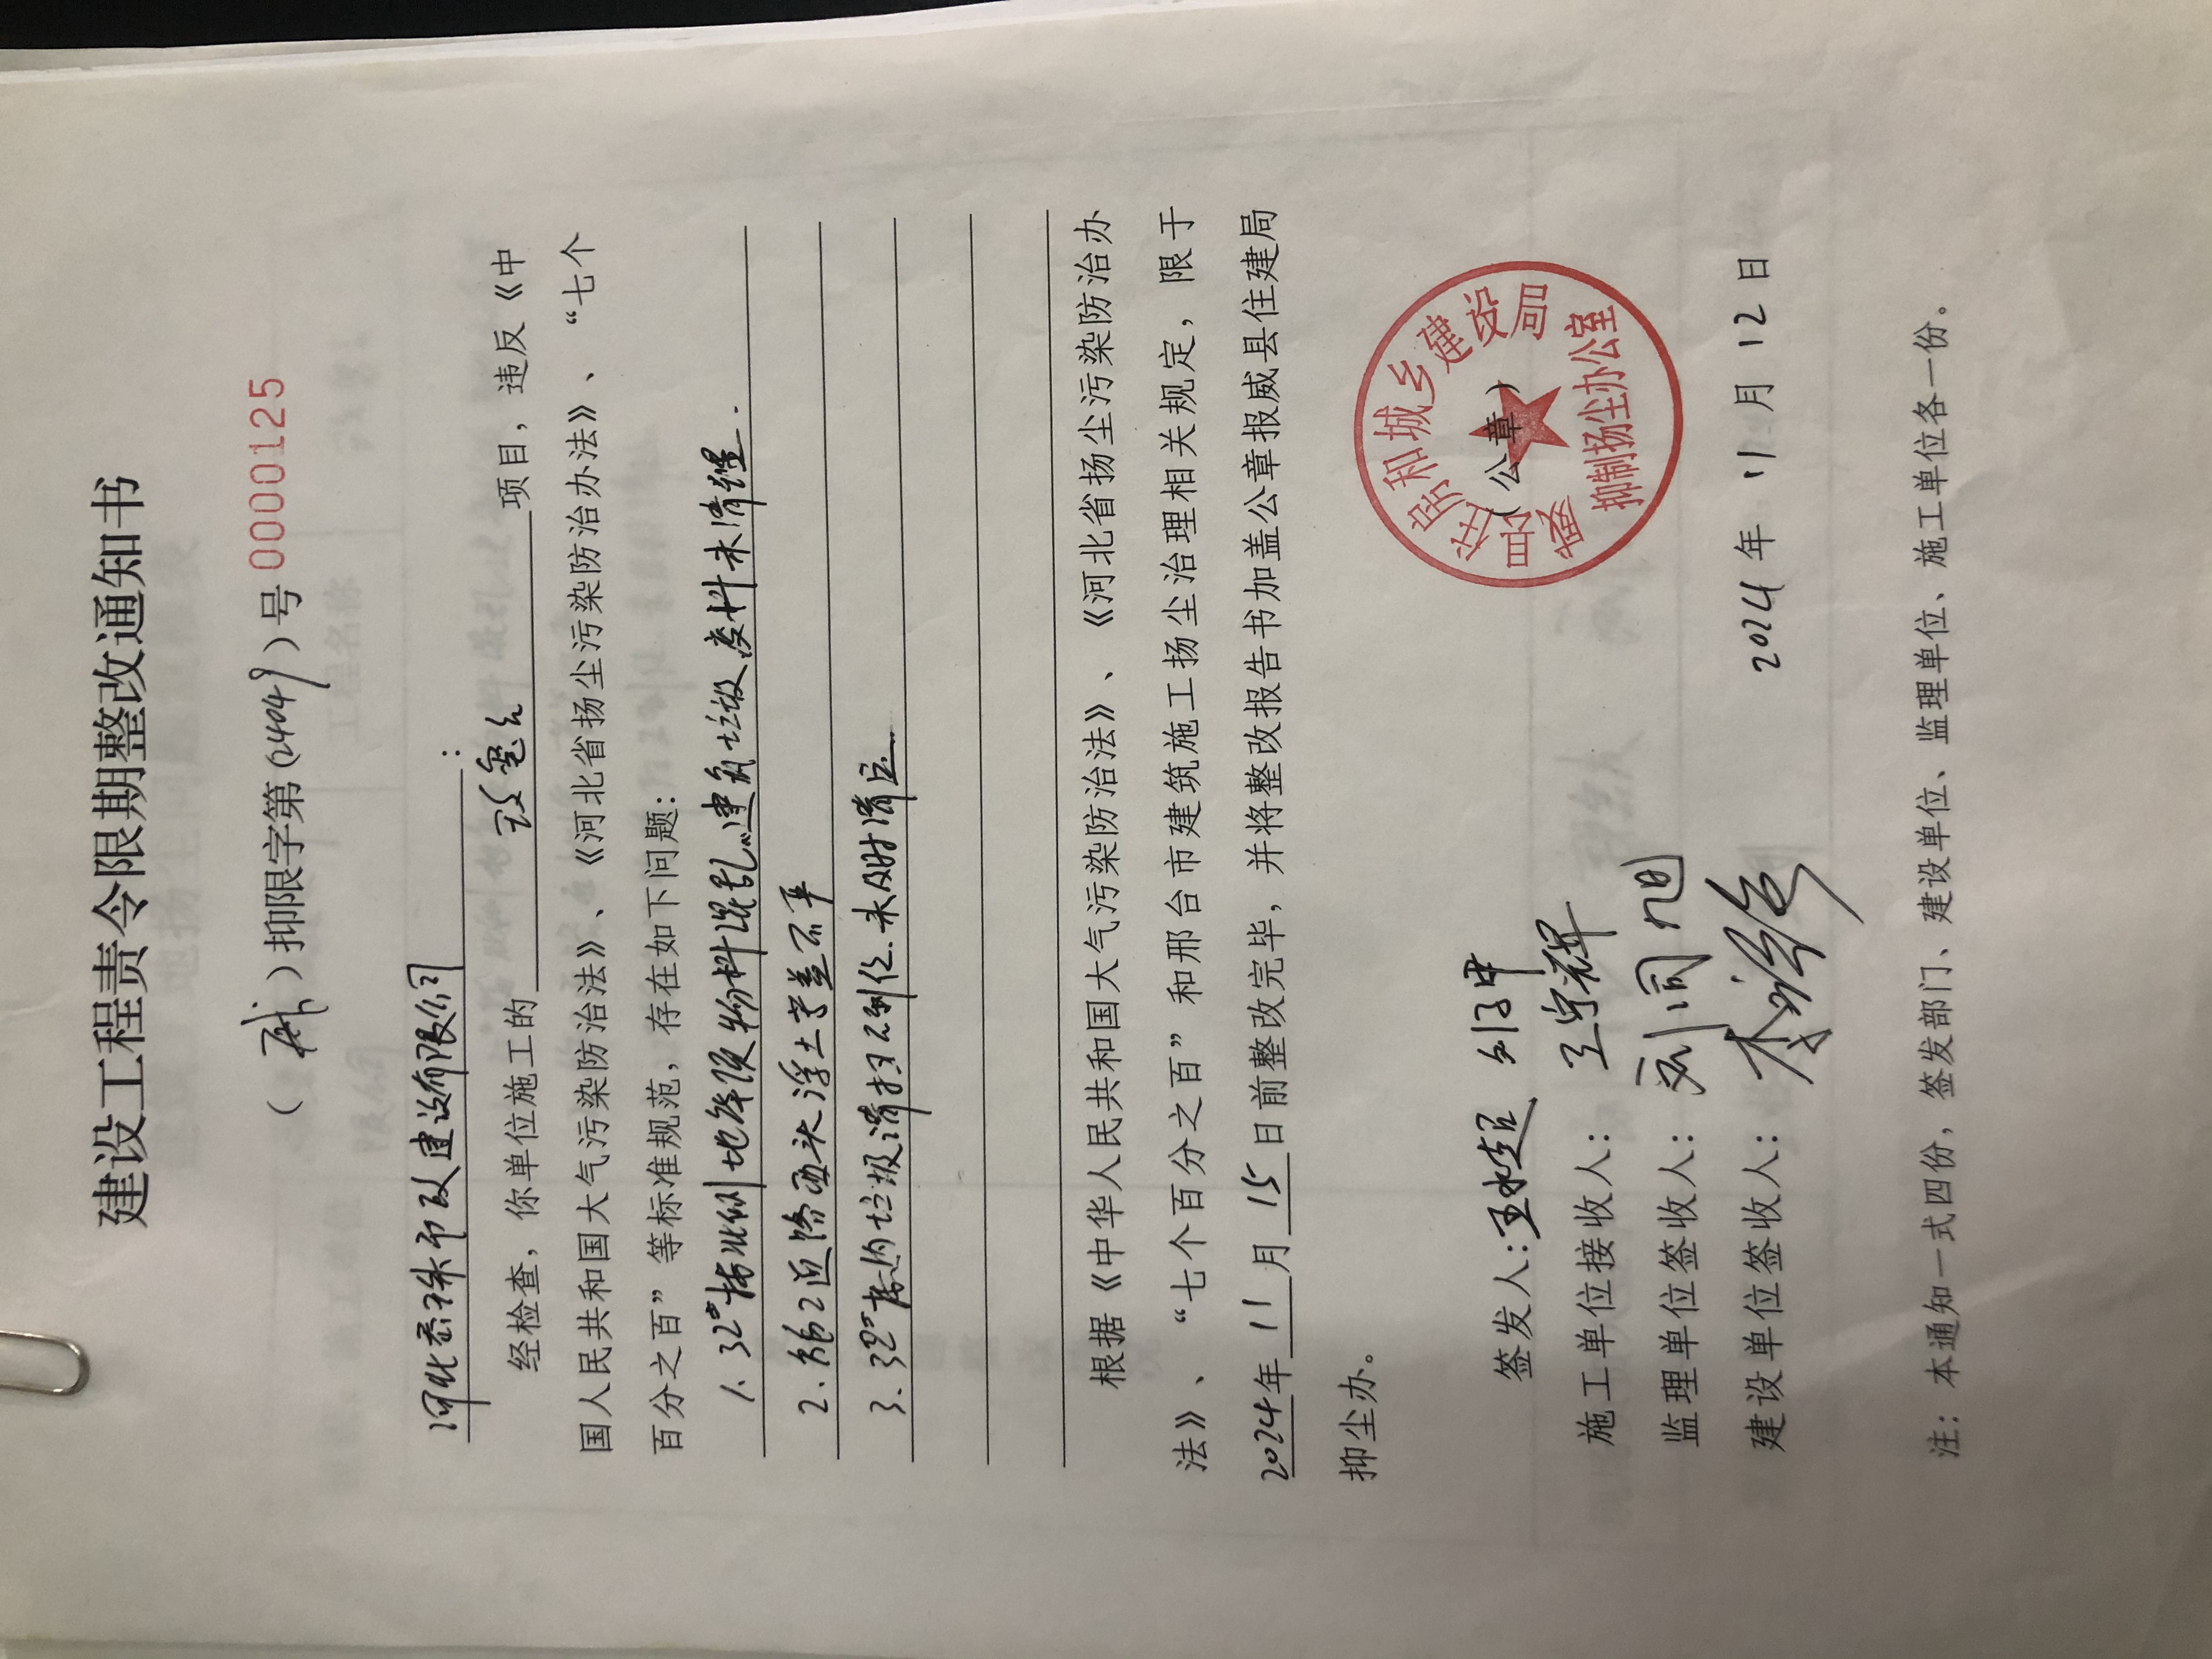 建设工程责令限期整改通知书
（威）抑限字第（2404）号0000125
河北春秋市政建设有限公司：
经检查，你单位施工的 项目，违反《中
国人民共和国大气污染防治法》、《河北省扬尘污染防治办法》、“七个
百分之百”等标准规范，存在如下问题：
1. 32#楼北侧地 物料混乱，建筑垃圾废料未清理.
2. 2 路西头浮土苫盖不严
3. 32# 垃圾清扫不到位.未及时清运.
根据《中华人民共和国大气污染防治法》、《河北省扬尘污染防治办
法》、“七个百分之百”和邢台市建筑施工扬尘治理相关规定，限于
2024年11月15日前整改完毕，并将整改报告书加盖公章报威县住建局
抑尘办。
威县住房和城乡建设局
抑制扬尘办公室
（公章）
签发人：王 超
施工单位接收人：王宗辉
监理单位签收人：刘同旭
建设单位签收人：李
2024年11月12日
注：本通知一式四份，签发部门、建设单位、监理单位、施工单位各一份。